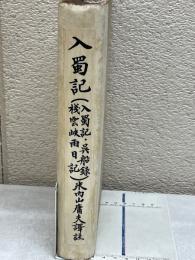 入蜀記
(入蜀記・呉船録
棧雲峡雨日記)
米内山庸夫譯註